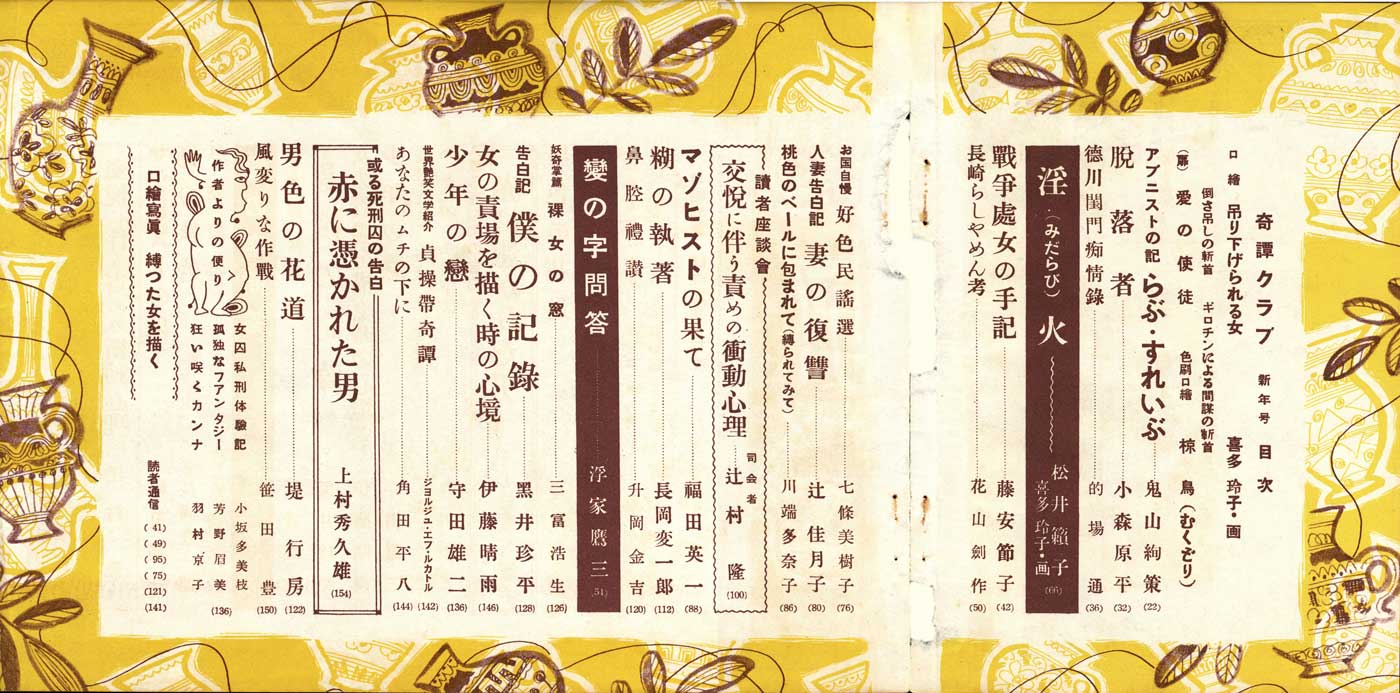 奇譚クラブ 新年号 目次
口繪 吊り下げられる女 喜多玲子・画
倒さ吊しの斬首 ギロチンによる間諜の斬首
(扉) 愛の使徒 色刷口繪 椋鳥(むくどり)
アブニストの記 らぶ・すれいぶ 鬼山絢策 (22)
脱落者 小森原平 (32)
德川閨門痴情錄 的場通 (36)
淫火(みだらび) 松井籟子 喜多玲子・画 (66)
戰爭處女の手記 藤安節子 (42)
長崎らしやめん考 花山劍作 (50)
お国自慢 好色民謠選 七條美樹子 (76)
人妻告白記 妻の復讐 辻佳月子 (80)
桃色のベールに包まれて(縛られてみて) 川端多奈子 (86)
讀者座談會
交悦に伴う責めの衝動心理 司会者 辻村隆 (100)
マゾヒストの果て 福田英一 (88)
糊の執著 長岡変一郎 (112)
鼻腔禮讃 升岡金吉 (120)
變の字問答 浮家鷹三 (54)
妖奇掌篇 裸女の窓 三富浩生 (126)
告白記 僕の記錄 黑井珍平 (128)
女の責場を描く時の心境 伊藤晴雨 (146)
少年の戀 守田雄二 (136)
世界艶笑文学紹介 貞操帶奇譚 ジョルジュ・エフ・カトル (142)
あなたのムチの下に 角田平八 (144)
或る死刑囚の告白
赤に憑かれた男 上村秀久雄 (154)
男色の花道 堤行房 (122)
風変りな作戰 笹田豊 (150)
作者よりの便り
女囚私刑体驗記 小坂多美枝
孤独なファンタジー 芳野眉美 (136)
狂い咲くカンナ 羽村京子
口繪寫眞 縛つた女を描く
読者通信 (41) (49) (95) (75) (121) (141)